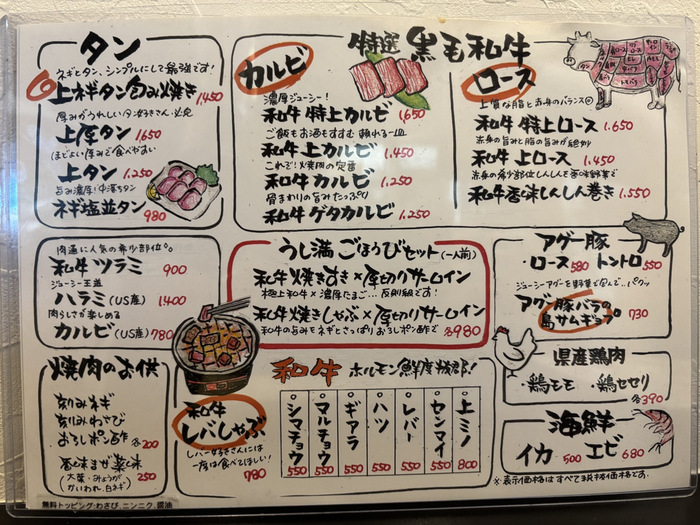 タン
ネギとタン、シンプルにして最強です!
上ネギタン包み焼き 1,450
厚みがうれしいタン好きさん必見
上厚タン 1,650
ほどよい厚みで食べやすい
上タン 1,250
旨み濃厚!中落ちタン
ネギ塩並タン 980
特選 黒毛和牛
カルビ
濃厚ジューシー!
和牛 特上カルビ 1,650
ご飯もお酒もすすむ 頼れる一皿
和牛 上カルビ 1,450
これぞ!焼肉の定番
和牛 カルビ 1,250
骨まわりの旨みたっぷり
和牛 ゲタカルビ 1,250
ロース
上質な脂と赤身のバランス◎
和牛 特上ロース 1,650
赤身の旨みと脂の旨みが絶妙
和牛 上ロース 1,450
赤身の希少部位しんしんを香味野菜で
和牛香味しんしん巻き 1,550
肉通に人気の希少部位。
和牛 ツラミ 900
ジューシー王道
ハラミ(US産) 1,400
肉らしさが楽しめる
カルビ(US産) 780
うし満ごほうびセット(一人前)
和牛焼きすき×厚切りサーロイン
極上和牛×濃厚たまご…反則級です!
和牛焼きしゃぶ×厚切りサーロイン
和牛の旨みをネギとさっぱりおろしポン酢で 各980
アグー豚
・ロース 580 トントロ 550
ジューシーアグーを野菜で包んで、パクッ
アグー豚バラの島サムギョプ 730
県産鶏肉
・鶏モモ ・鶏セセリ
各390
海鮮
イカ 500 エビ 680
※表示価格はすべて税抜価格です。
焼肉のお供
刻みネギ
刻みわさび
おろしポン酢 各200
香味まぜ薬味 250
(大葉・みょうが
かいわれ、白ネギ)
無料トッピング:わさび、ニンニク、醤油
和牛
レバしゃぶ
レバー好きさんには
一度は食べてほしい! 780
和牛 ホルモン鮮度抜群!
シマチョウ 550
マルチョウ 550
ギアラ 550
ハツ 550
レバー 550
センマイ 550
上ミノ 800